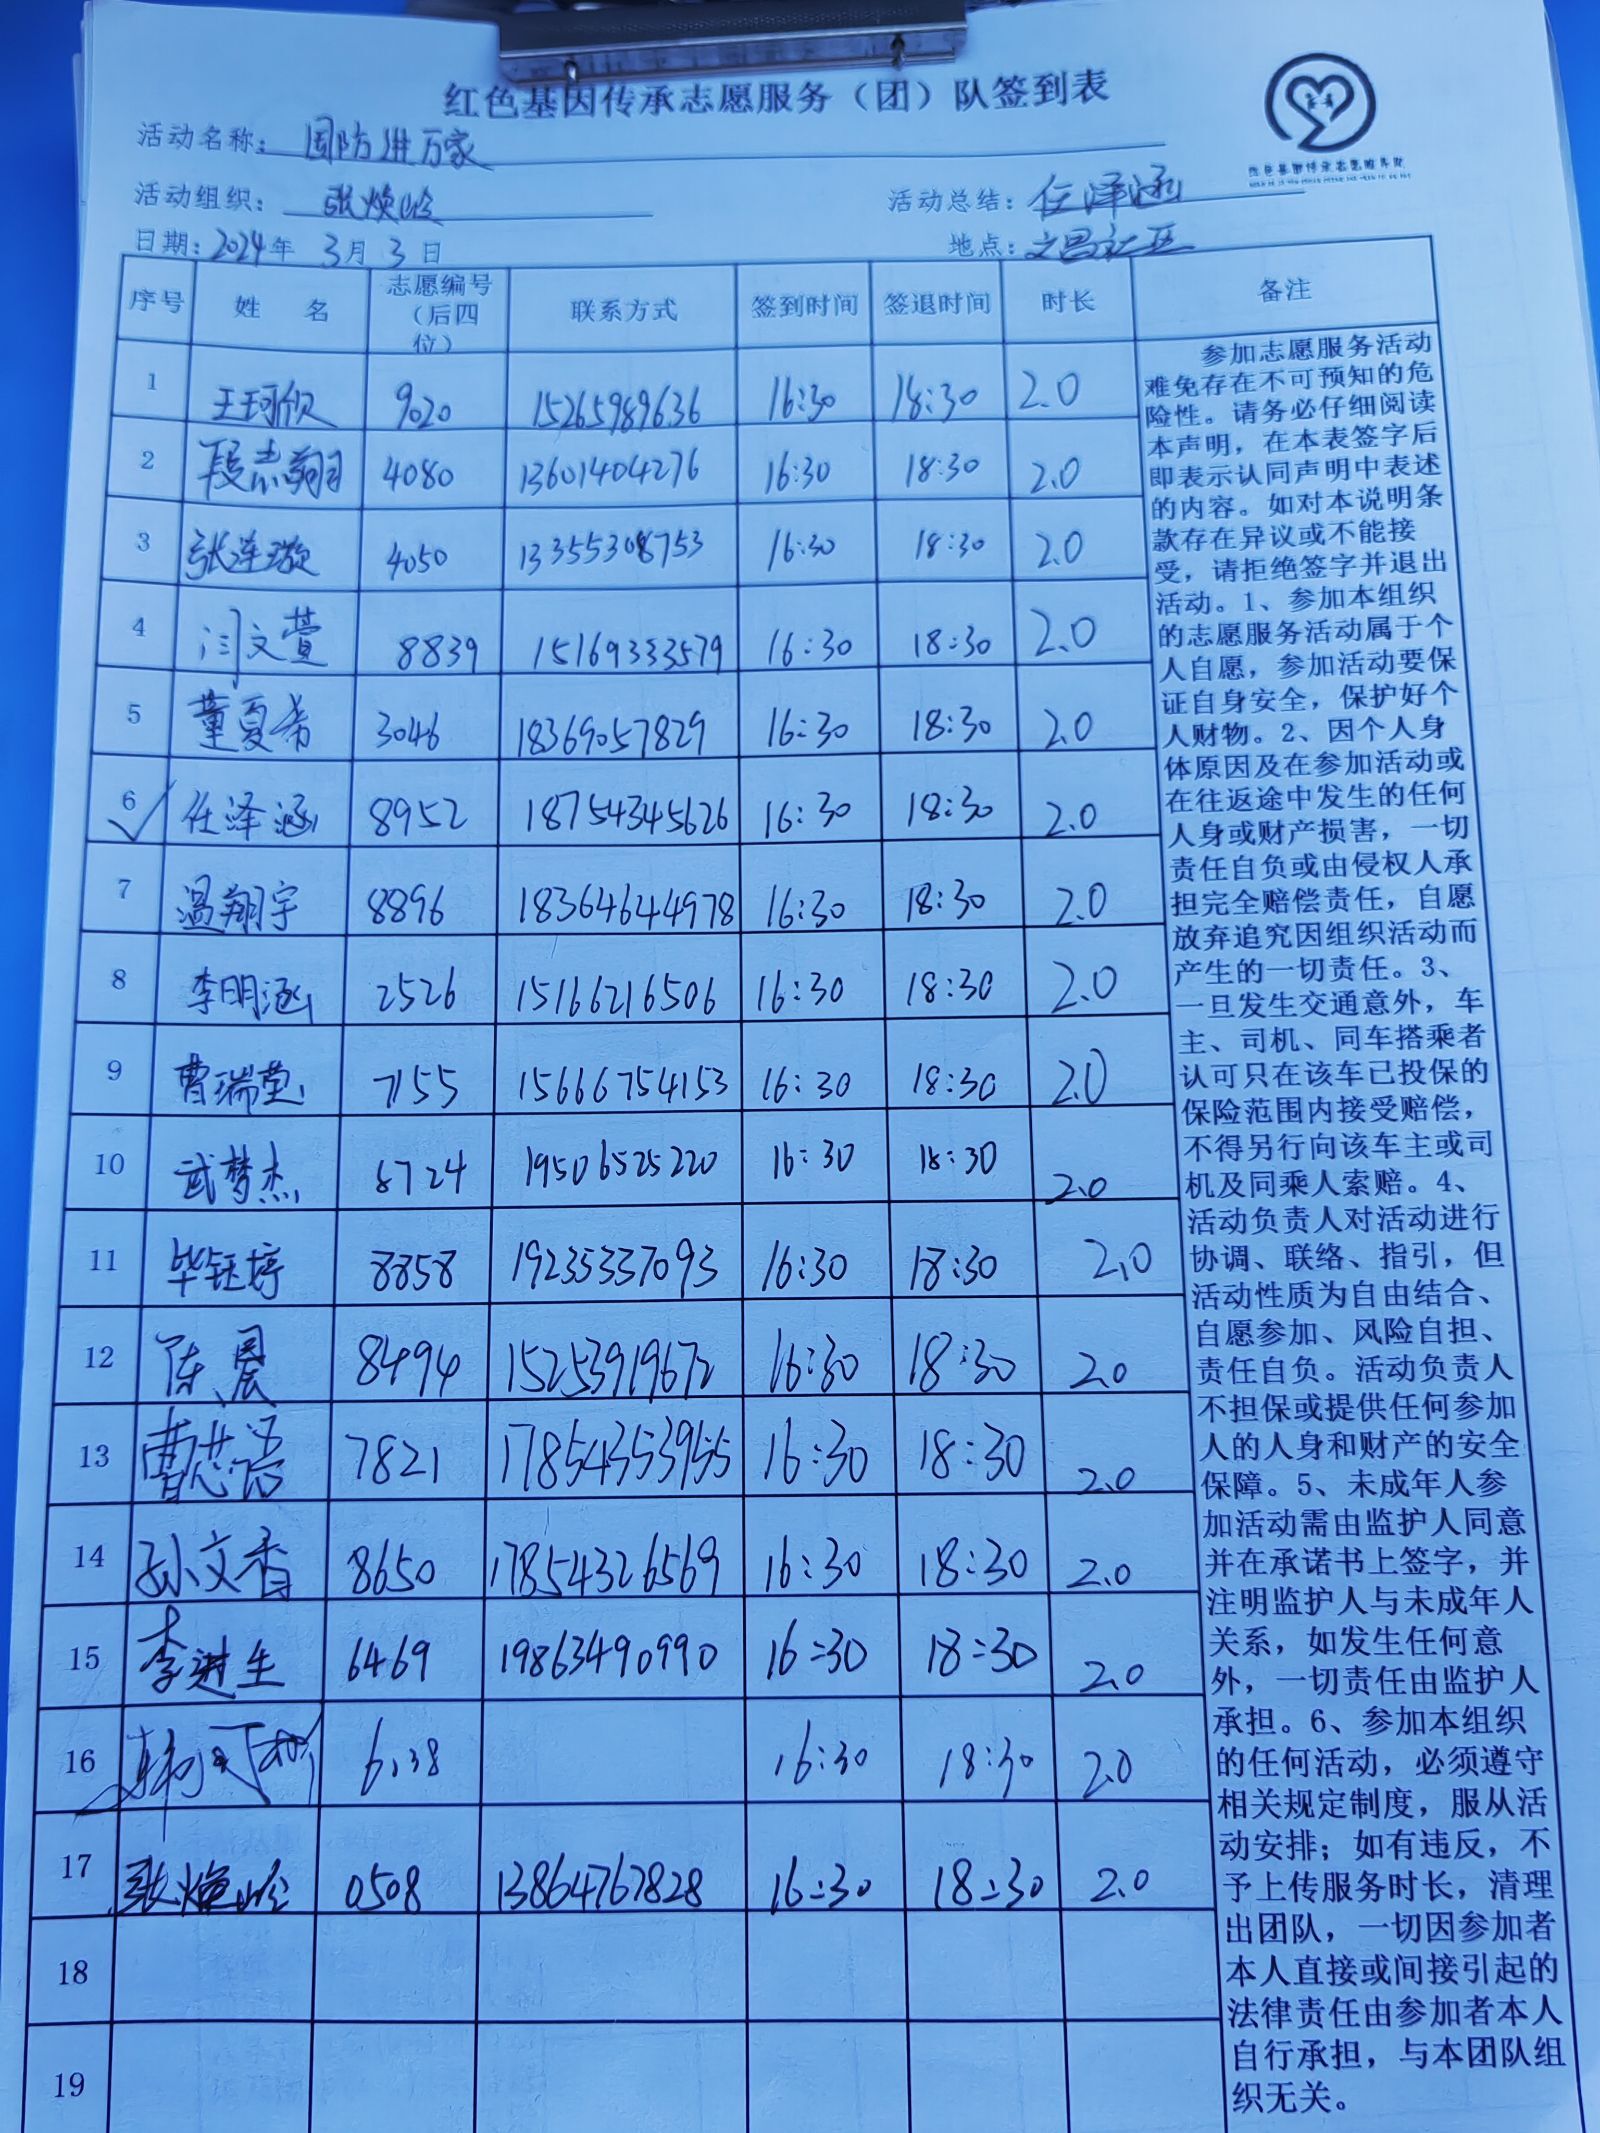 红色基因传承志愿服务（团）队签到表
活动名称：国防进万家
活动组织：张焕岭 活动总结：任泽涵
日期：2024年 3月 3日 地点：文昌社区
序号 姓 名 志愿编号（后四位） 联系方式 签到时间 签退时间 时长 备注
1 王珂欣 9020 15265989636 16:30 18:30 2.0
2 段志翔 4080 13601404276 16:30 18:30 2.0
3 张连璇 4050 13355308753 16:30 18:30 2.0
4 闫文萱 8839 15169333579 16:30 18:30 2.0
5 董夏希 3046 18369057829 16:30 18:30 2.0
6 任泽涵 8952 18754345626 16:30 18:30 2.0
7 温翔宇 8896 18364644978 16:30 18:30 2.0
8 李明涵 2526 15166216506 16:30 18:30 2.0
9 曹瑞莹 7155 15666754153 16:30 18:30 2.0
10 武梦杰 8724 19506525220 16:30 18:30 2.0
11 毕钰婷 8858 19235337093 16:30 18:30 2.0
12 陈晨 8494 15253919672 16:30 18:30 2.0
13 曹芯语 7821 17854353955 16:30 18:30 2.0
14 孙文香 8650 17854326569 16:30 18:30 2.0
15 李进生 6469 19863490990 16:30 18:30 2.0
16 6138 16:30 18:30 2.0
17 张焕岭 0508 13864767828 16:30 18:30 2.0
18
19
参加志愿服务活动
难免存在不可预知的危
险性。请务必仔细阅读
本声明，在本表签字后
即表示认同声明中表述
的内容。如对本说明条
款存在异议或不能接
受，请拒绝签字并退出
活动。1、参加本组织
的志愿服务活动属于个
人自愿，参加活动要保
证自身安全，保护好个
人财物。2、因个人身
体原因及在参加活动或
在往返途中发生的任何
人身或财产损害，一切
责任自负或由侵权人承
担完全赔偿责任，自愿
放弃追究因组织活动而
产生的一切责任。3、
一旦发生交通意外，车
主、司机、同车搭乘者
认可只在该车已投保的
保险范围内接受赔偿，
不得另行向该车主或司
机及同乘人索赔。4、
活动负责人对活动进行
协调、联络、指引，但
活动性质为自由结合、
自愿参加、风险自担、
责任自负。活动负责人
不担保或提供任何参加
人的人身和财产的安全
保障。5、未成年人参
加活动需由监护人同意
并在承诺书上签字，并
注明监护人与未成年人
关系，如发生任何意
外，一切责任由监护人
承担。6、参加本组织
的任何活动，必须遵守
相关规定制度，服从活
动安排；如有违反，不
予上传服务时长，清理
出团队，一切因参加者
本人直接或间接引起的
法律责任由参加者本人
自行承担，与本团队组
织无关。